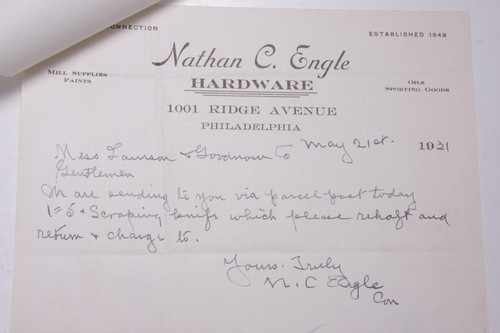 CONNECTION
ESTABLISHED 1849
Nathan C. Engle
HARDWARE
MILL SUPPLIES
PAINTS
OILS
SPORTING GOODS
1001 RIDGE AVENUE
PHILADELPHIA
May 21st. 1931
Mess Lamson & Goodnow Co
Gentlemen
We are sending to you via parcel post today
1= 5 Scraping knife which please rehaft and
return & charge to.
Yours. Truly
N. C Engle